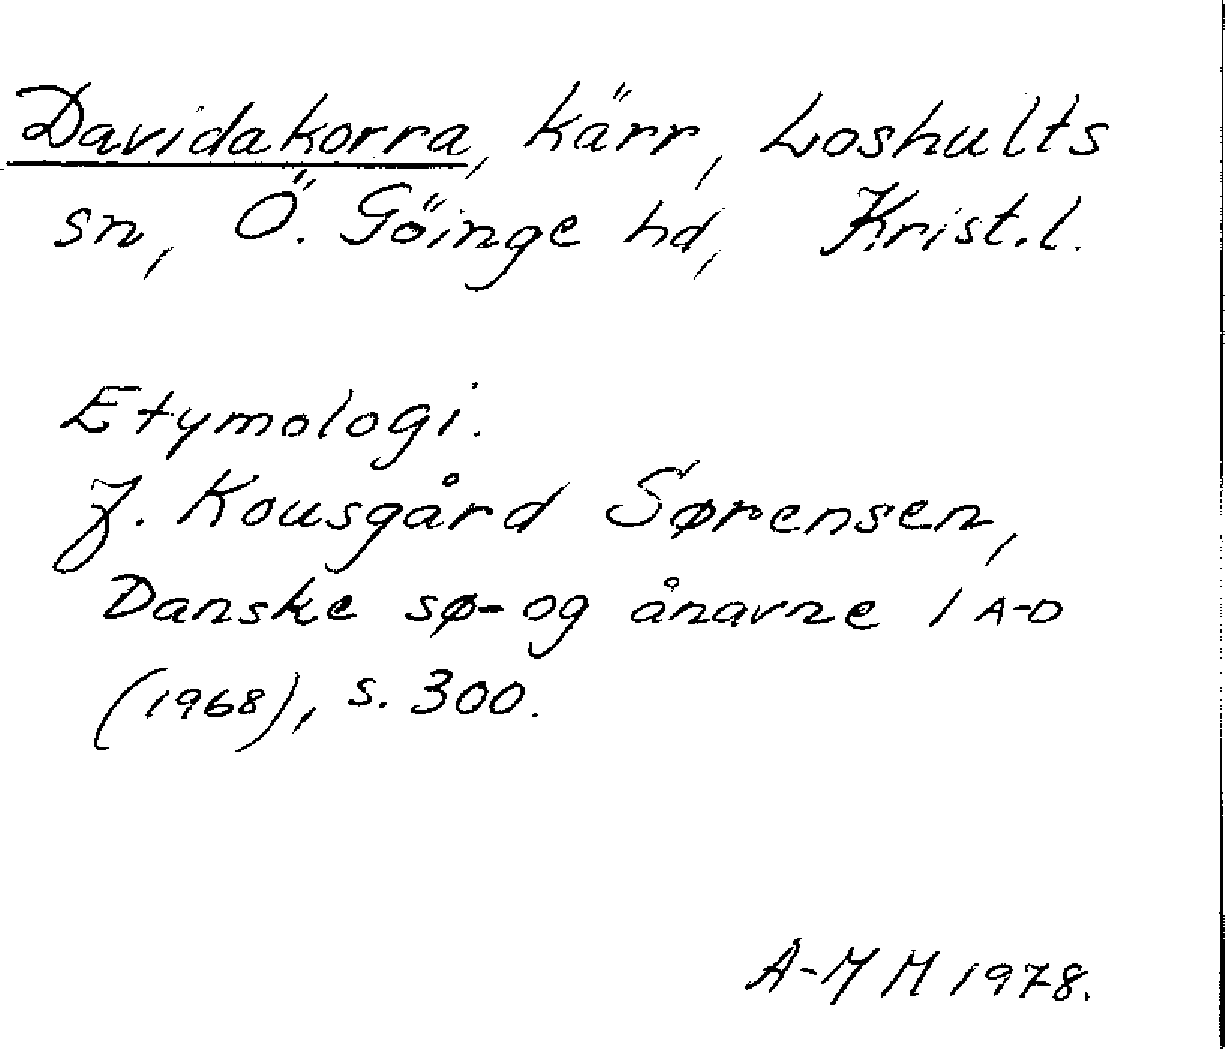 Davidakorra, kärr, Loshults
sn, Ö. Göinge hd, Krist.l.
Etymologi.
J. Kousgård Sørensen,
Danske sø- og ånavne 1 A-D
(1968), s. 300.
A-M M 1978.